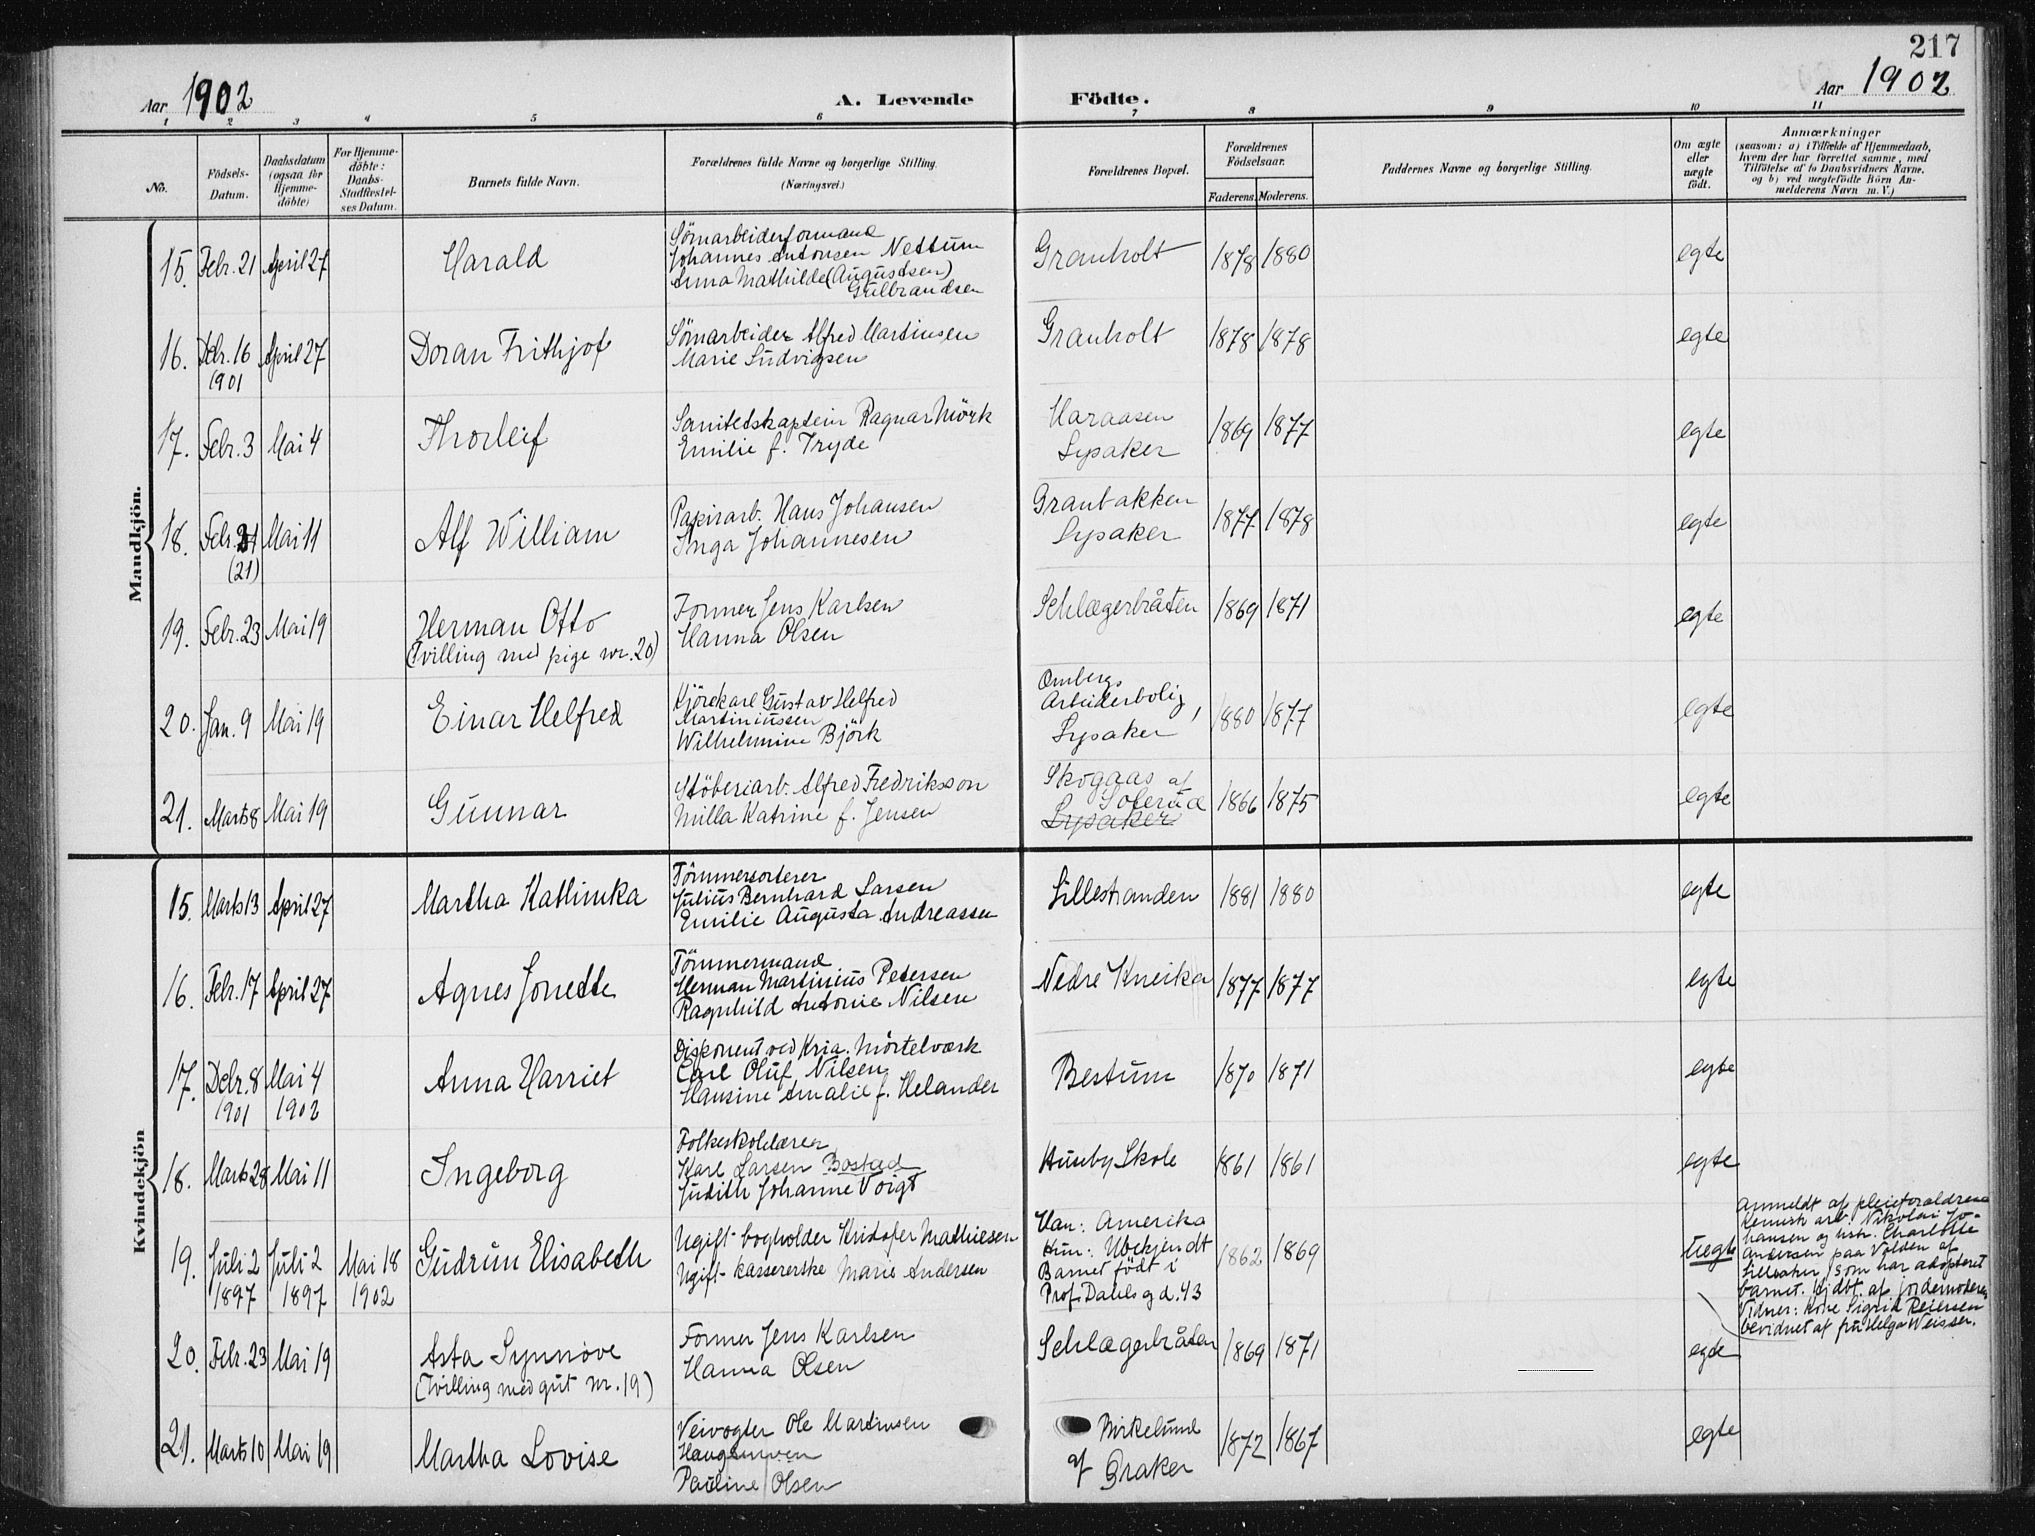 217
Aar 1902 A. Levende Födte. Aar 1902
1 2 3 4 5 6 7 8 9 10 11
No.
Födsels-
Datum.
Daabsdatum
(ogsaa for
Hjemme-
döbte)
For Hjemme-
döbte:
Daabs-
Stadfæstel-
ses Datum.
Barnets fulde Navn.
Forældrenes fulde Navne og borgerlige Stilling.
(Næringsvei.)
Forældrenes Bopæl.
Forældrenes
Födselsaar.
Faderens. Moderens.
Faddernes Navne og borgerlige Stilling.
Om ægte
eller
uægte
födt.
Anmærkninger
(saasom: a) i Tilfælde af Hjemmedaab,
hvem der har forrettet samme, med
Tilföielse af to Daabsvidners Navne.
og b) ved uægtefödte Börn An-
melderens Navn m. V.)
Mandkjön.
15. Febr. 21 April 27 Harald
Sömarbeiderformand
Johannes Antonsen Nettum
Anna Mathilde (Augustsen)
Gulbrandsen
Granholt 1878 1880 egte
16. Debr. 16
1901
April 27 Doran Frithjof
Sömarbeider Alfred Martinsen
Marie Ludvigsen
Granholt 1878 1878 egte
17. Febr. 3 Mai 4 Thorleif
Sanitetskaptein Ragnar Mörk
Emilie f. Tryde
Haraasen
Lysaker
1869 1877 egte
18. Febr. 21
(21)
Mai 11 Alf William
Papirarb. Hans Johansen
Inga Johannesen
Granbakken
Lysaker
1877 1878 egte
19. Febr. 23 Mai 19 Herman Otto
(Tvilling med pige nr. 20)
Former Jens Karlsen
Hanna Olsen
Schlægerbråten 1869 1871 egte
20. Jan. 9 Mai 19 Einar Helfred
Kjörekarl Gustav Helfred
Martiniussen
Wilhelmine Björk
Ombergs
Arbeiderbolig,
Lysaker
1880 1877 egte
21. Marts 8 Mai 19 Gunnar
Stöberiarb. Alfred Fredriksson
Milla Katrine f. Jensen
Skogaas af
Sollerud
Lysaker
1866 1875 egte
Kvindekjön
15. Marts 13 April 27 Martha Kathinka
Tömmersorterer
Julius Bernhard Larsen
Emilie Augusta Andreassen
Lillestranden 1881 1880 egte
16. Febr. 17 April 27 Agnes Jonette
Tömmermand
Herman Martinius Petersen
Ragnhild Antonie Nilsen
Nedre Kneika 1877 1877 egte
17. Debr. 8
1901
Mai 4
1902
Anna Harriet
Disponent ved Kria. Mörtelværk
Carl Oluf Nilsen
Hansine Amalie f. Helander
Bestum 1870 1871 egte
18. Marts 28 Mai 11 Ingeborg
Folkeskolelærer
Karl Larsen Bostad
Judith Johanne Voigt
Huseby Skole 1861 1861 egte
19. Juli 2
1897
Juli 2
1897
Mai 18
1902
Gudrun Elisabeth
Ugift bogholder Kristofer Mathiesen
Ugift kassererske Marie Andersen
Han: Amerika
Hun: Ubekjendt
Barnet födt i
Prof. Dahls gd. 43
1862 1869 uegte
Anmeldt af pleieforældrene
kemisk arb. Nikolai Jo-
hansen og hstr. Charlotte
Andersen paa Volden af
Lilleaker, som har adopteret
barnet. Hjdbt. af jordemoderen
Vidner: Kone Sigrid Petersen
bevidnet af fru Helga Weisser.
20. Febr. 23 Mai 19 Asta Synnöve
(Tvilling med gut nr. 19)
Former Jens Karlsen
Hanna Olsen
Schlægerbråten 1869 1871 egte
21. Marts 10 Mai 19 Martha Lovise
Veivogter Ole Martinsen
Pauline Olsen
Birkelund
af Øraker
1872 1867 egte